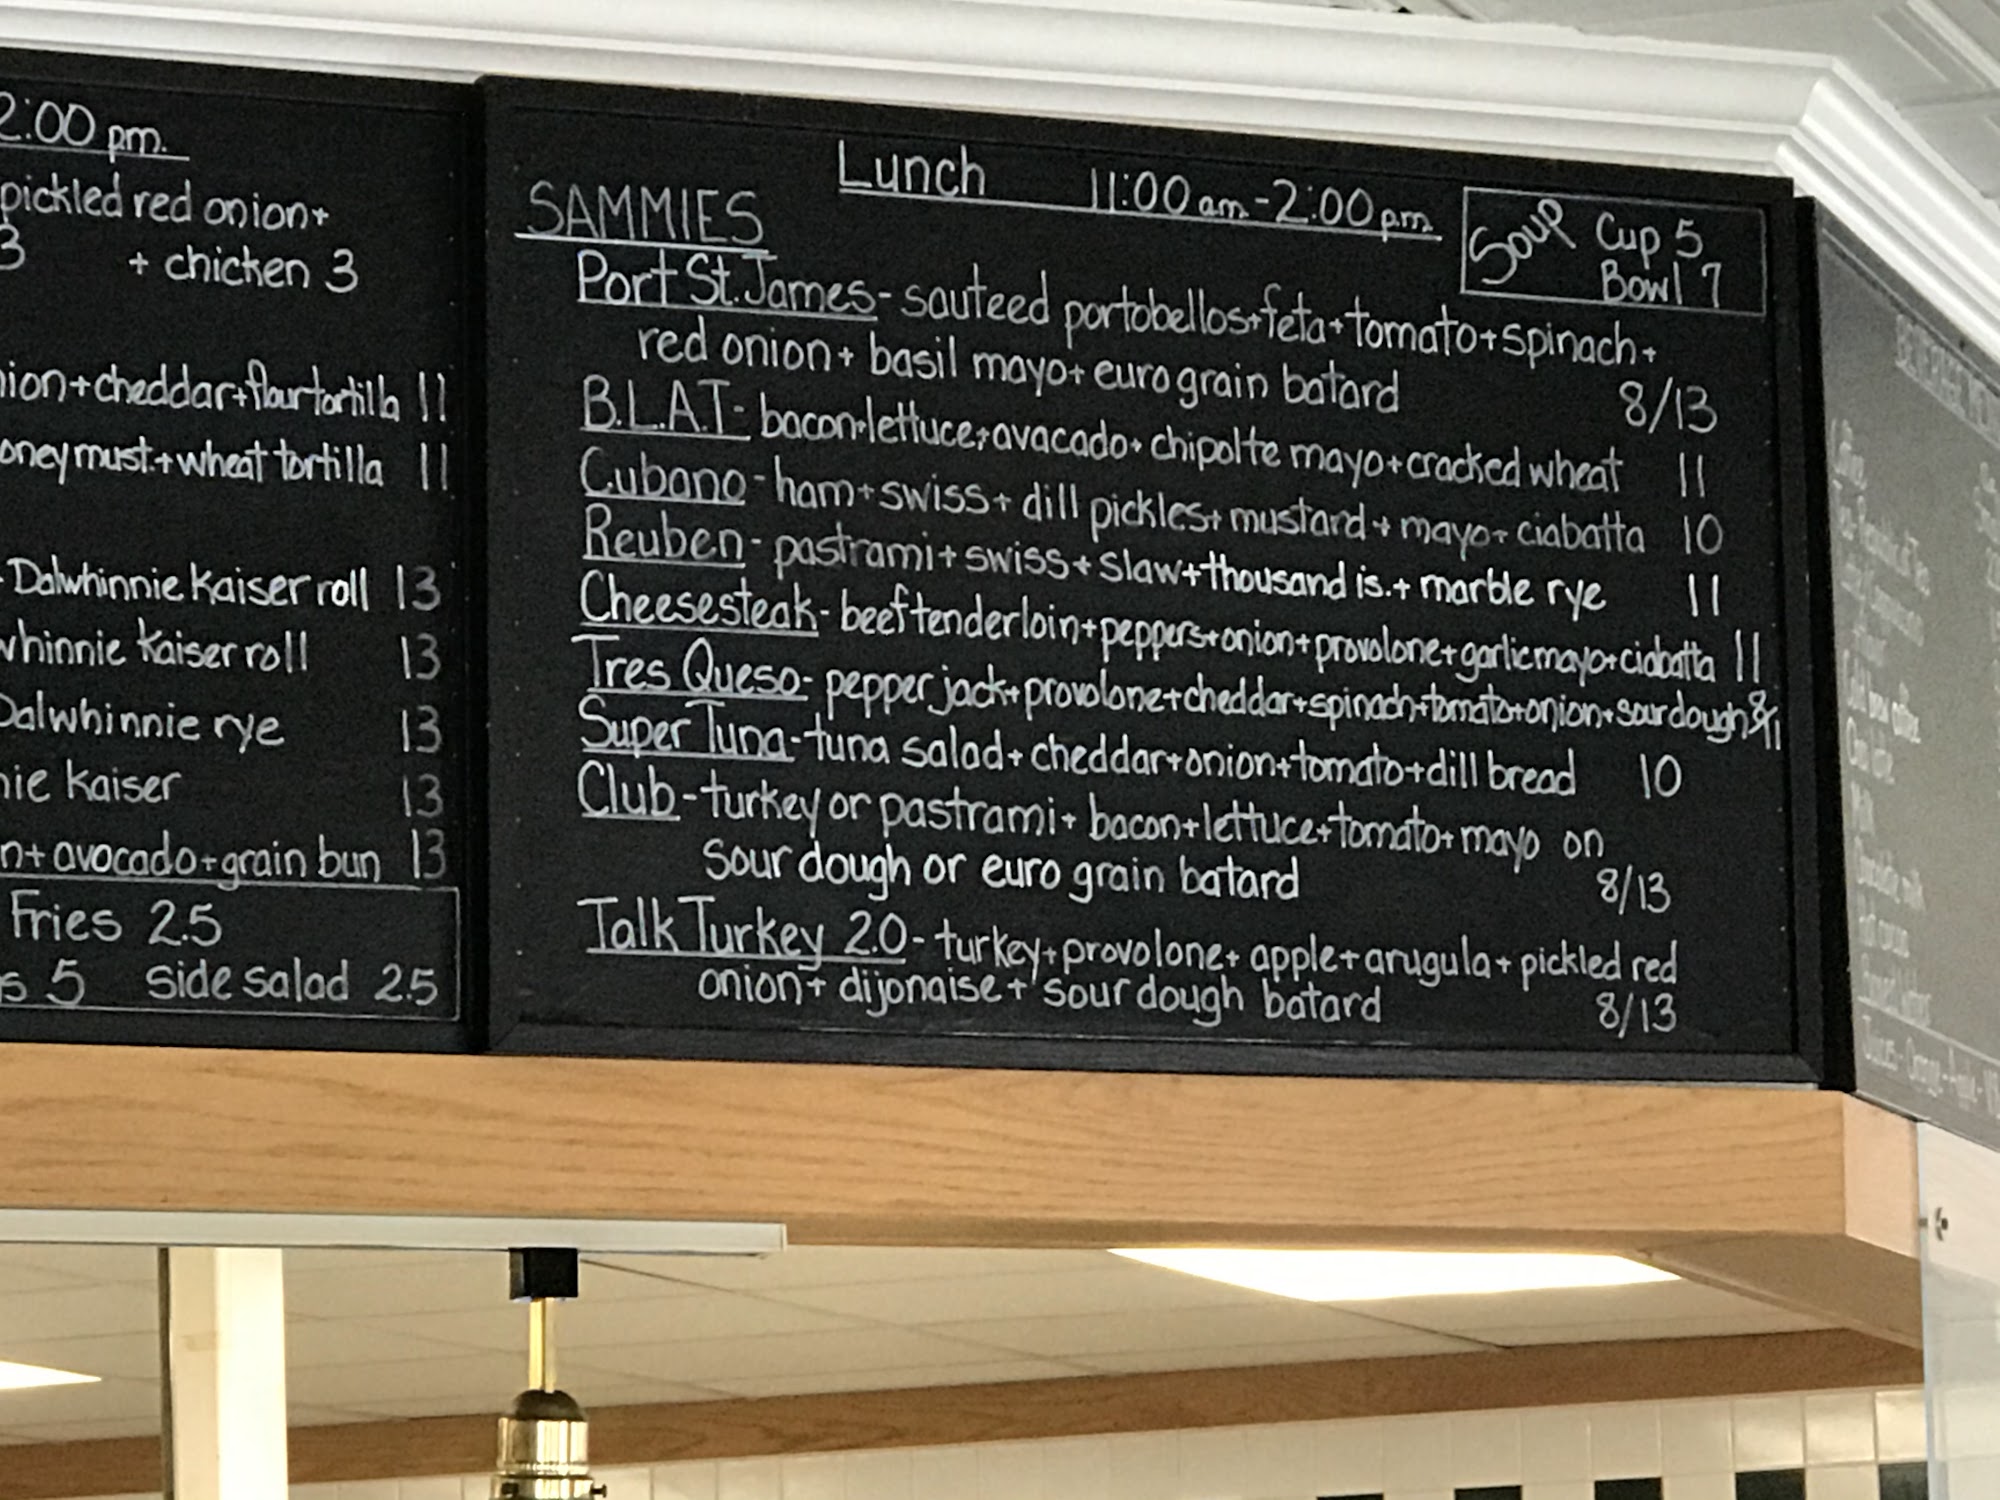 2:00 pm.
pickled red onion+
3 + chicken 3
nion+cheddar+flour tortilla 11
oney must.+wheat tortilla 11
Dalwhinnie Kaiser roll 13
whinnie Kaiser roll 13
Dalwhinnie rye 13
nie Kaiser 13
n+avocado+grain bun 13
Fries 2.5
s 5 side salad 2.5
Lunch 11:00 am-2:00 pm
SAMMIES
Soup Cup 5
Bowl 7
Port St. James- sauteed portobellos+feta+tomato+spinach+
red onion+ basil mayo+ euro grain batard 8/13
B.L.A.T- bacon+lettuce+avacado+ chipolte mayo+cracked wheat 11
Cubano- ham+swiss+ dill pickles+ mustard+ mayo+ ciabatta 10
Reuben- pastrami+swiss+slaw+thousand is.+ marble rye 11
Cheesesteak- beef tenderloin+peppers+onion+provolone+garlic mayo+ciabatta 11
Tres Queso- pepper jack+provolone+cheddar+spinach+tomato+onion+sour dough 8/11
Super Tuna-tuna salad+ cheddar+onion+tomato+dill bread 10
Club-turkey or pastrami+ bacon+lettuce+tomato+ mayo on
sour dough or euro grain batard 8/13
Talk Turkey 2.0- turkey+provolone+ apple+arugula+ pickled red
onion+ dijonaise+ sour dough batard 8/13
Cold brew coffee
Milk
Chocolate milk
Juices - Orange - Apple -